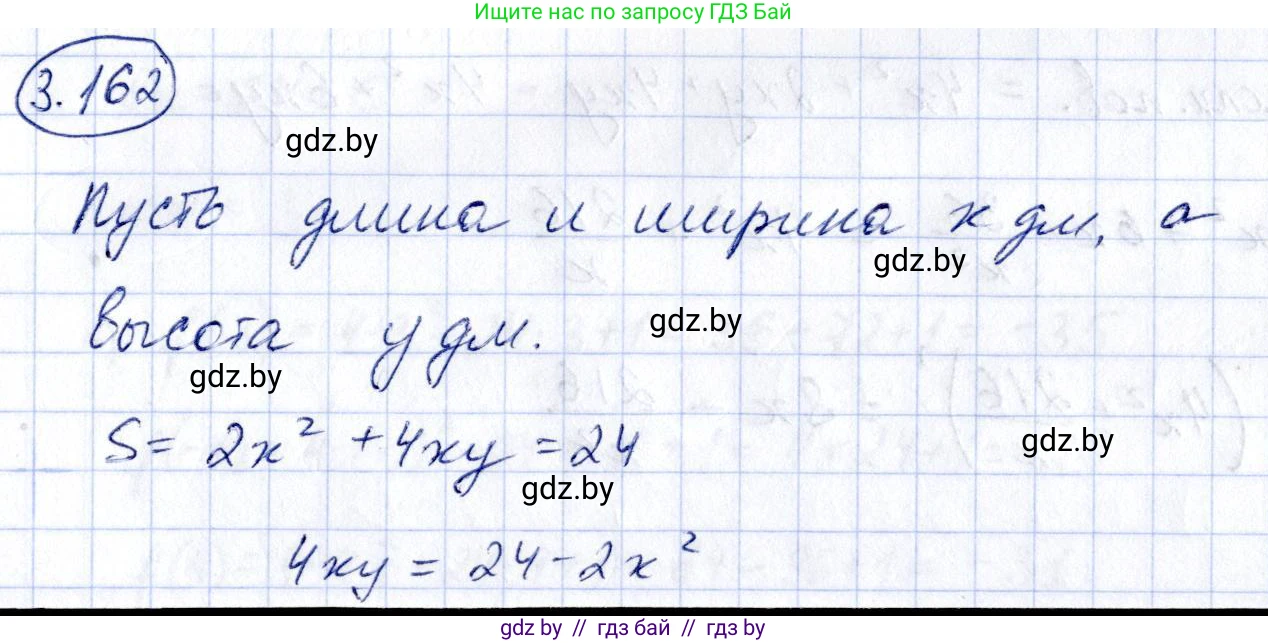 Ищите нас по запросу ГДЗ Бай
3.162
gdz.by
Пусть длина и ширина x дм, а
gdz.by
высота y дм.
gdz.by
gdz.by
S = 2x² + 4xy = 24
gdz.by
gdz.by
4xy = 24 - 2x²
gdz by // гдз бай // гдз by